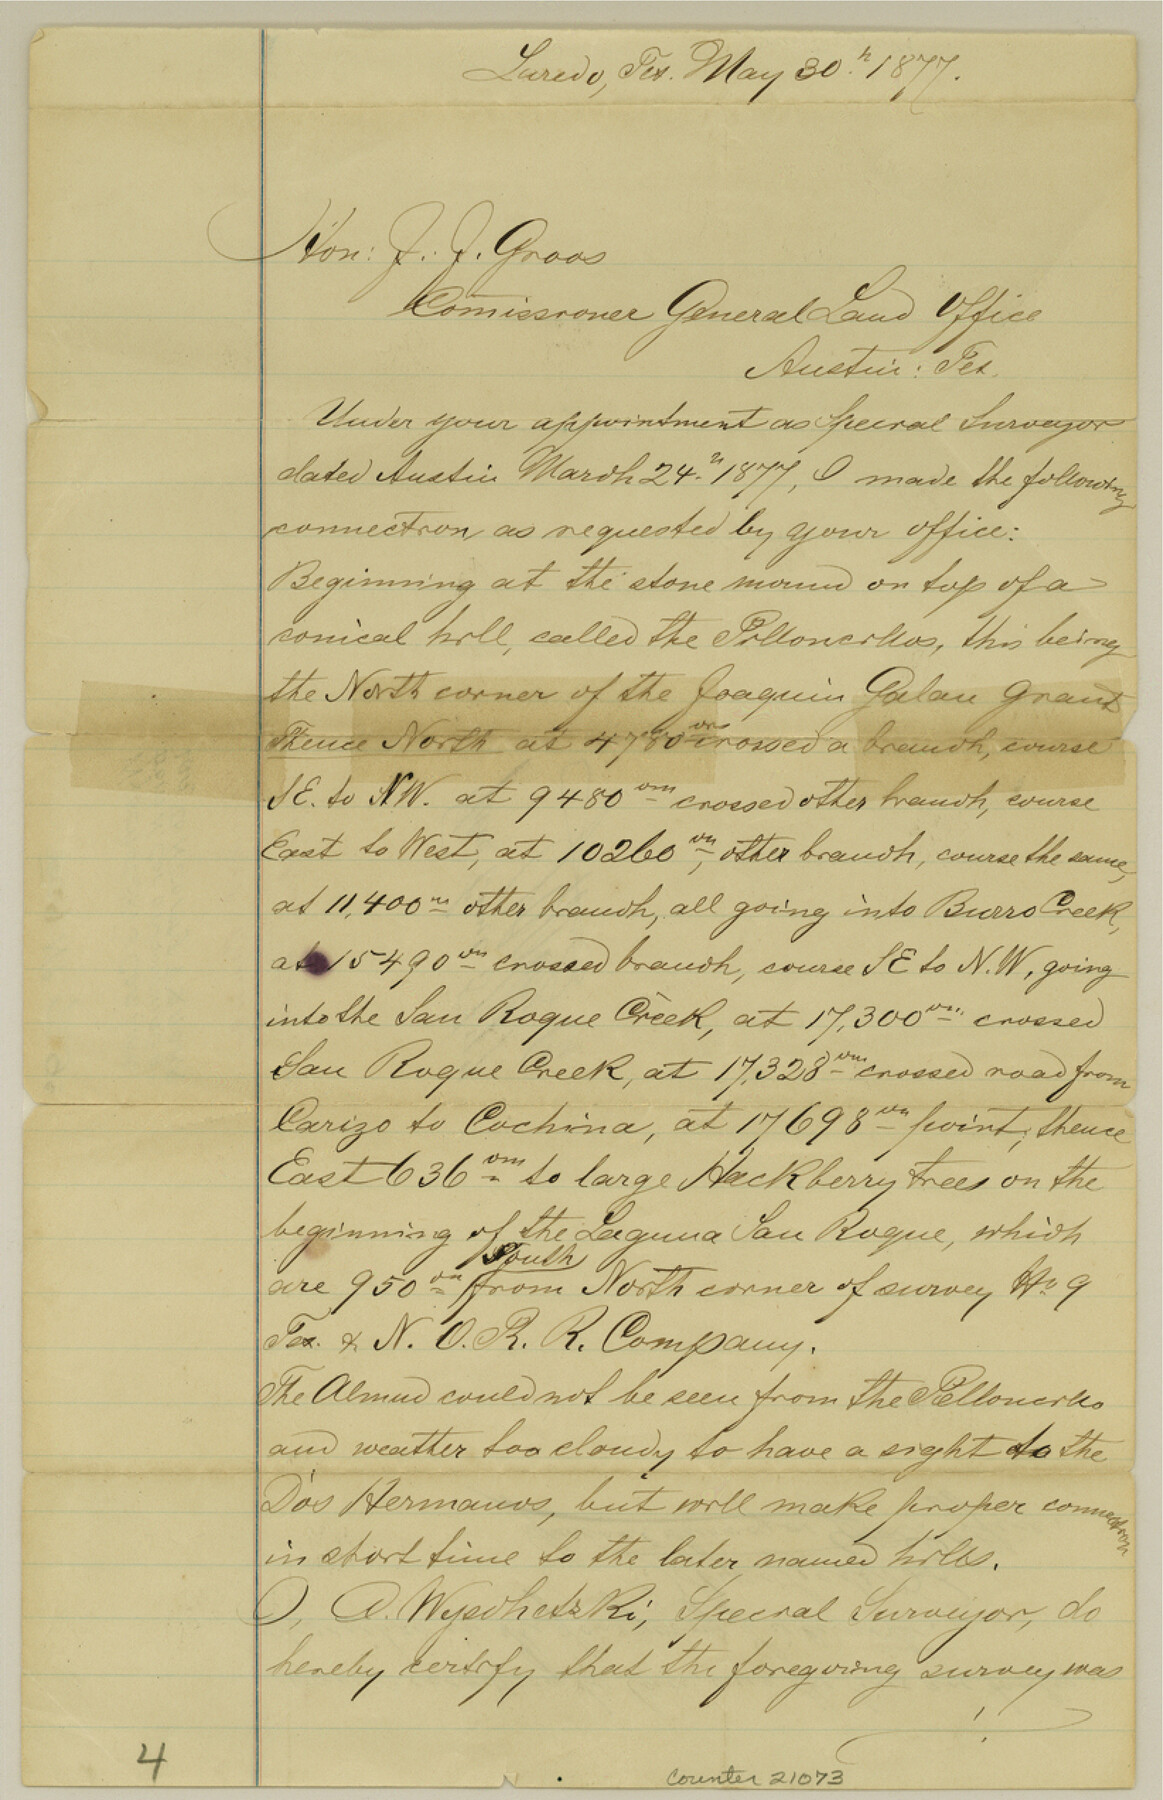 Laredo, Tex. May 30.h 1877.
Hon: J. J. Groos
Comissioner General Land Office
Austin: Tex.
Under your appointment as Special Surveyor
dated Austin March 24.n 1877, I made the following
connection as requested by your office:
Beginning at the stone mound on top of a
conical hill, called the Pilloncillos, this being
the North corner of the Joaquin Galan Grant
Thence North at 4780 vrs crossed a branch, course
S E. to N.W. at 9480 vrs crossed other branch, course
East to West, at 10260 vrs, other branch, course the same,
at 11,400 vrs other branch, all going into Burro Creek,
at 15490 vrs crossed branch, course S E to N.W, going
into the San Roque Creek, at 17,300 vrs. crossed
San Roque Creek, at 17,328 vrs crossed road from
Carizo to Cochina, at 17698 vrs point; thence
East 636 vrs to large Hackberry trees on the
beginning of the Laguna San Roque, which
South
are 950 vrs from North corner of survey No 9
Tex. & N. O. R. R. Company.
The Almud could not be seen from the Pelloncillo
and weather too cloudy to have a sight to the
Dos Hermanos, but will make proper connection
in short time to the later named hills.
I, A. Wyschetzki, Special Surveyor, do
hereby certify that the foregoing survey was
4
counter 21073